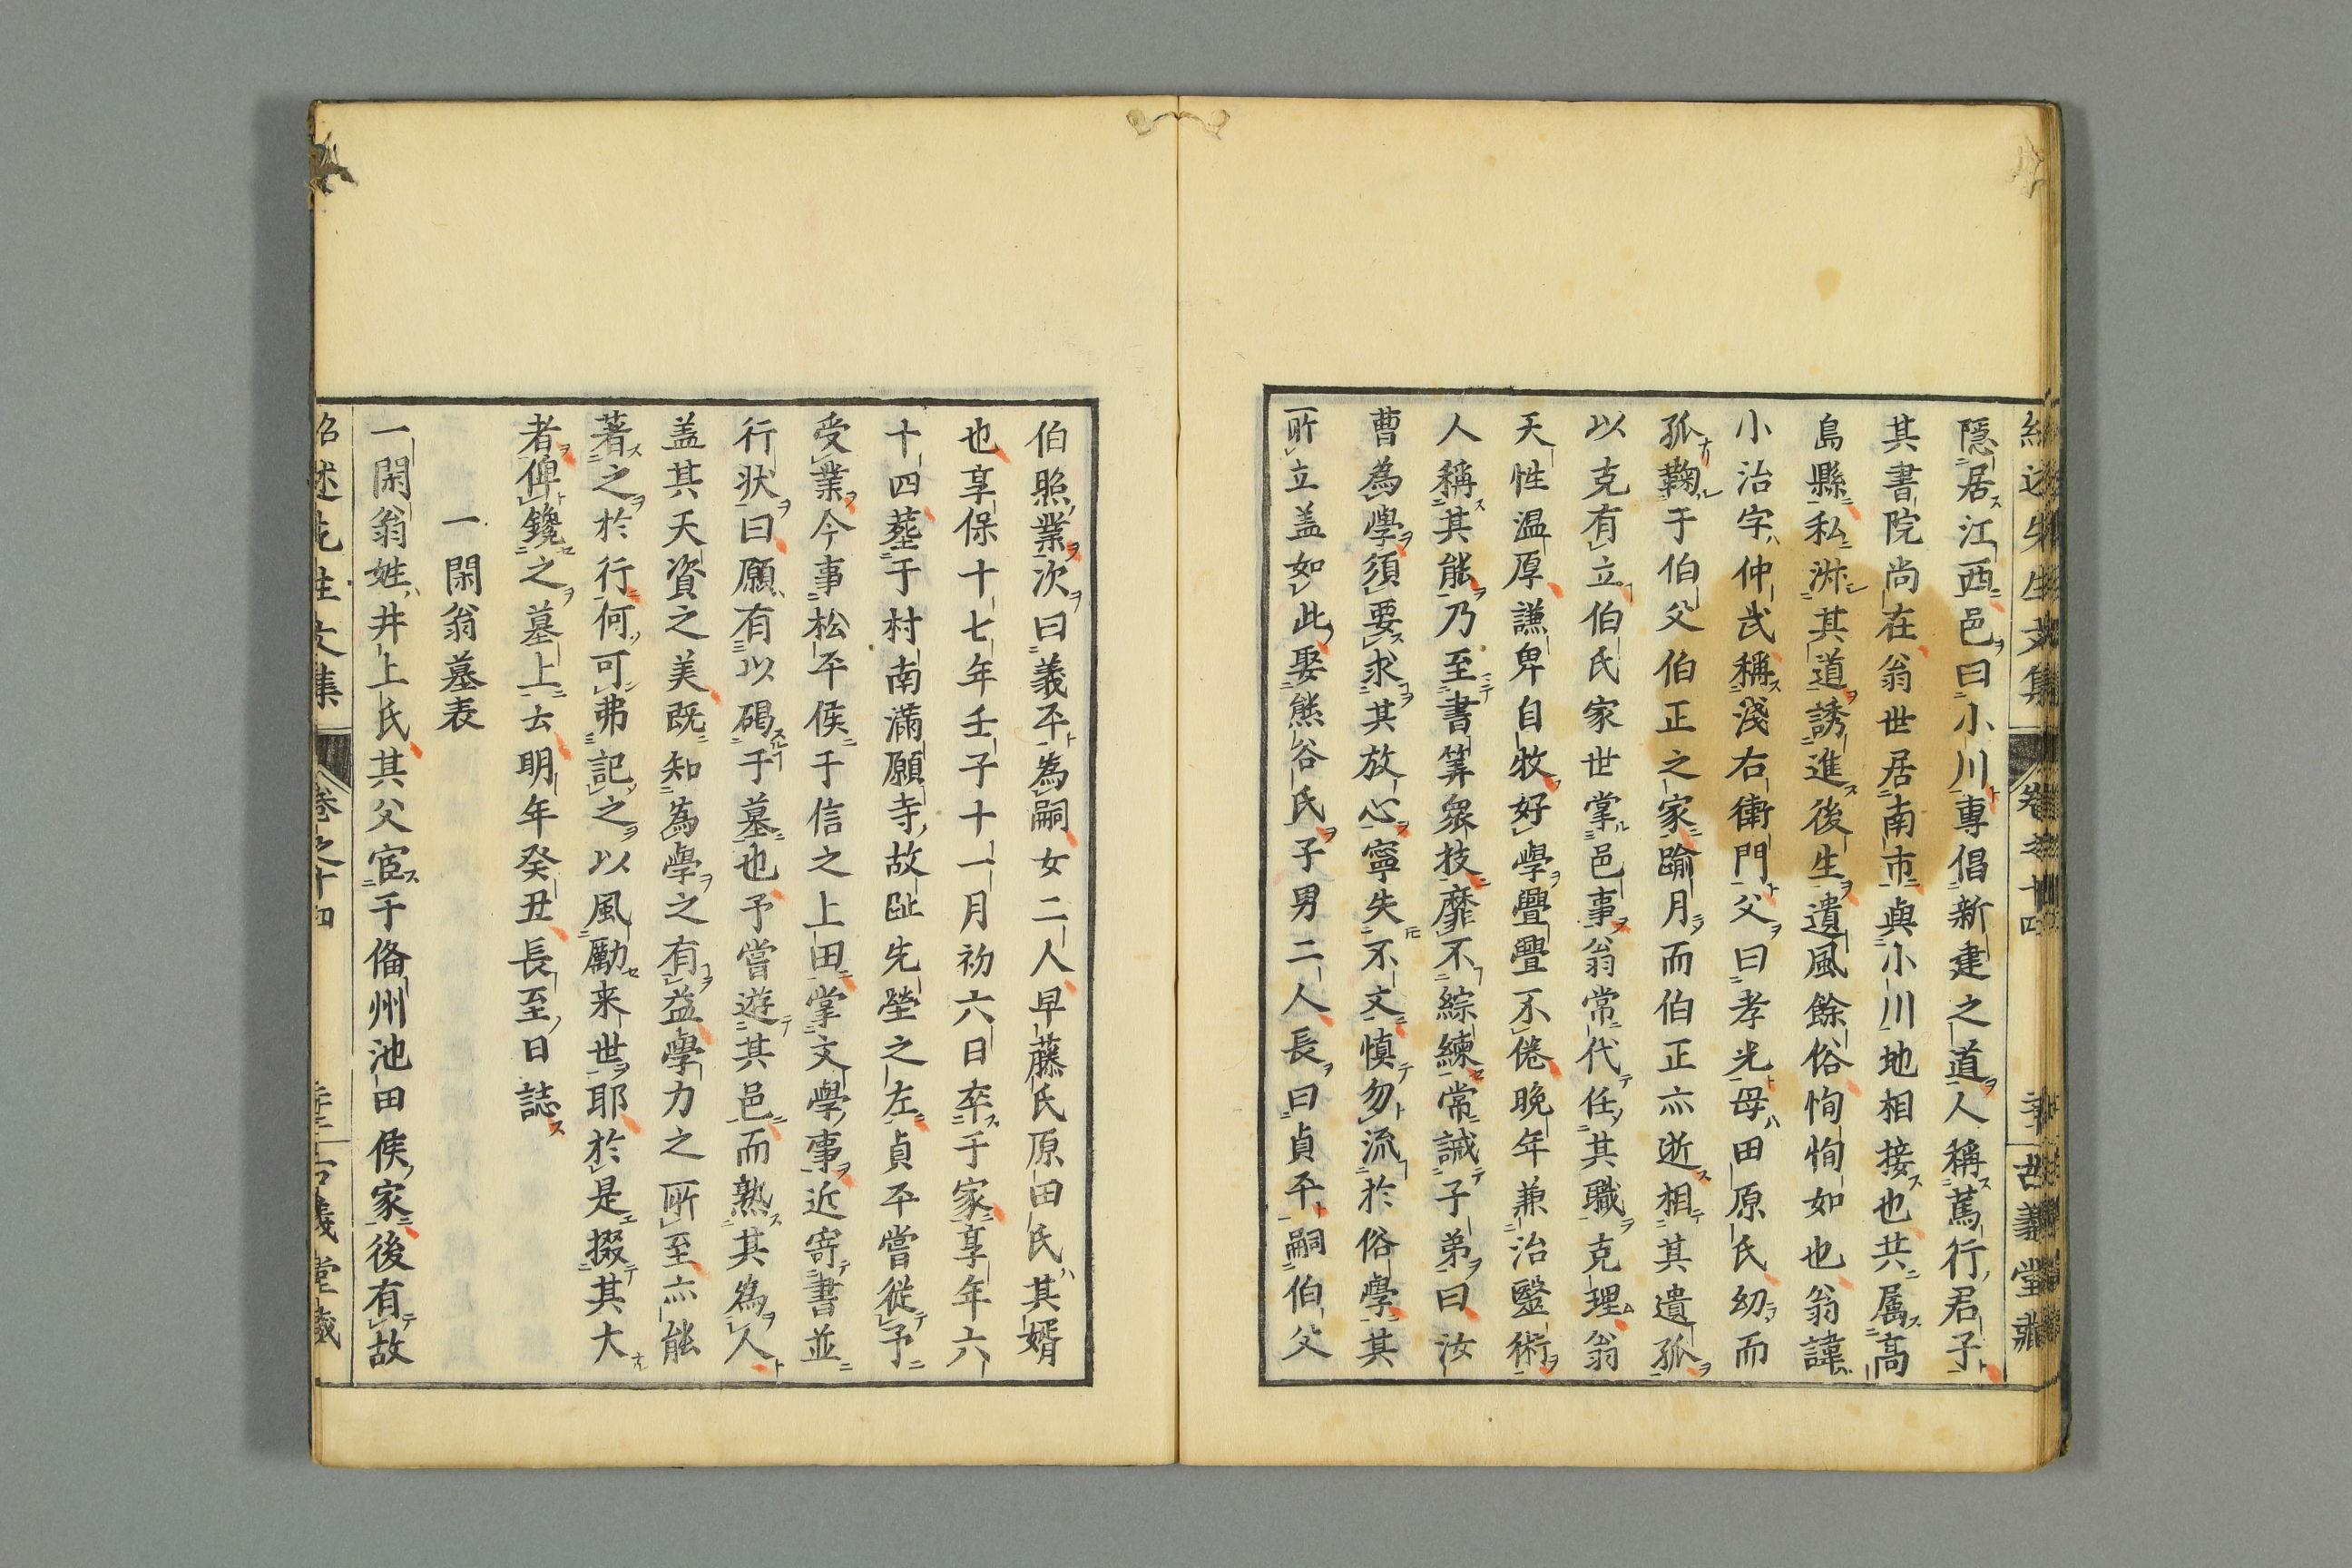 紹述先生文集 卷之十四 古義堂藏
隱居江西邑曰小川專倡新建之道人稱篤行君子
其書院尚在翁世居南市與小川地相接也共属高
島縣私淑其道誘進後生遺風餘俗恂恂如也翁諱
小治字仲武稱淺右衛門父曰孝光母田原氏幼而
孤鞠于伯父伯正之家踰月而伯正亦逝相其遺孤
以克有立伯氏家世掌邑事翁常代任其職克理翁
天性温厚謙卑自牧好學亹亹不倦晚年兼治醫術
人稱其能乃至書筭衆技靡不綜練常誡子弟曰汝
曹為學須要求其放心寧失不文慎勿流於俗學其
所立盖如此娶熊谷氏子男二人長曰貞平嗣伯父
伯照業次曰義平為嗣女二人早藤氏原田氏其婿
也享保十七年壬子十一月初六日卒于家享年六
十四葬于村南滿願寺故趾先塋之左貞平嘗從予
受業今事松平侯于信之上田掌文學事近寄書並
行状曰願有以碣于墓也予嘗遊其邑而熟其為人
盖其天資之美既知為學之有益學力之所至亦能
著之於行何可弗記之以風勵来世耶於是掇其大
者俾鑱之墓上去明年癸丑長至日誌
一閑翁墓表
一閑翁姓井上氏其父宦于俻州池田侯家後有故
紹述先生文集 卷之十四 古義堂藏